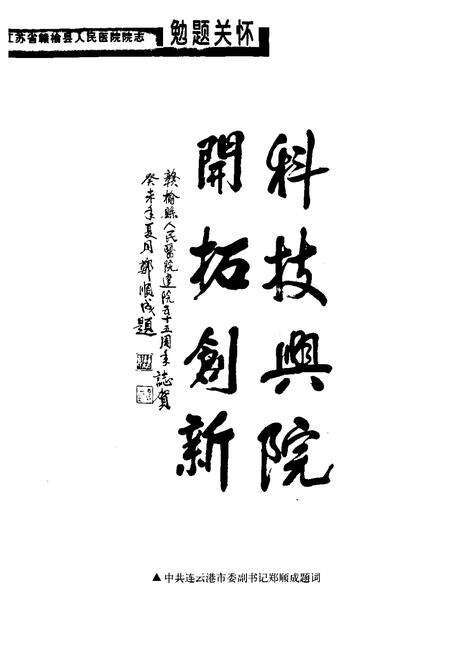 江苏省赣榆县人民医院院志
勉题关怀
科技興院
開拓創新
贛榆縣人民醫院建院五十五周年誌賀
癸未年夏月鄭順成題
▲中共连云港市委副书记郑顺成题词